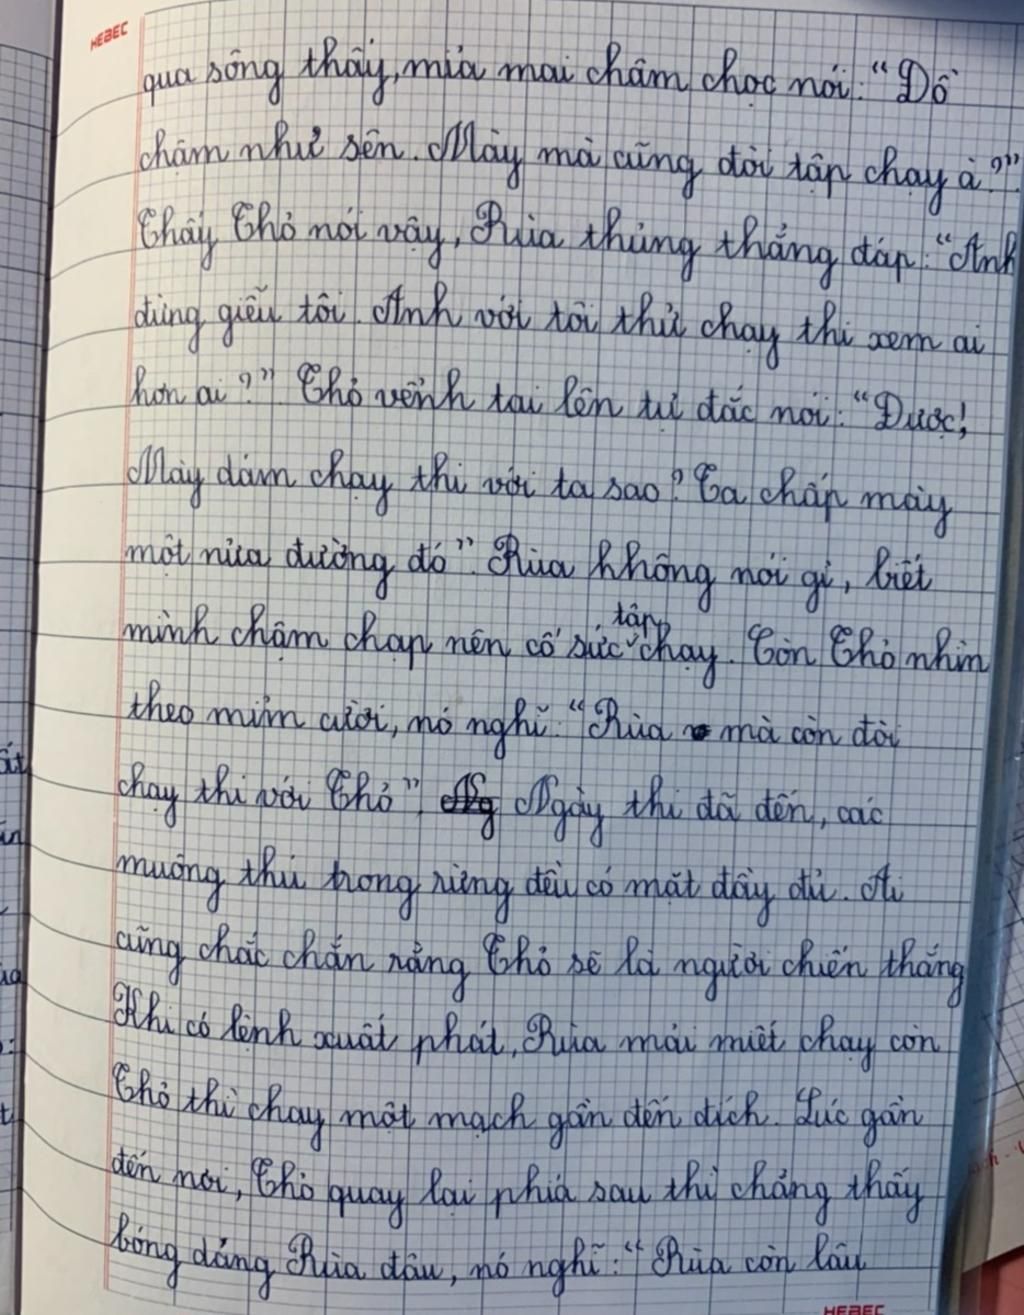 HEBEC
qua sông thấy, mỉa mai châm chọc nói: “Đồ
chậm như sên. Mày mà cũng đòi tập chạy à?”.
Thấy Thỏ nói vậy, Rùa thủng thẳng đáp: “Anh
đừng giễu tôi. Anh với tôi thử chạy thi xem ai
hơn ai?” Thỏ vểnh tai lên tự đắc nói: “Được!
Mày dám chạy thi với ta sao? Ta chấp mày
một nửa đường đó”. Rùa không nói gì, biết
mình chậm chạp nên cố sức tập chạy. Còn Thỏ nhìn
theo mỉm cười, nó nghĩ: “Rùa mà còn đòi
chạy thi với Thỏ”. Ngày thi đã đến, các
muông thú trong rừng đều có mặt đầy đủ. Ai
cũng chắc chắn rằng Thỏ sẽ là người chiến thắng
Khi có lệnh xuất phát, Rùa mải miết chạy còn
Thỏ thì chạy một mạch gần đến đích. Lúc gần
đến nơi, Thỏ quay lại phía sau thì chẳng thấy
bóng dáng Rùa đâu, nó nghĩ: “Rùa còn lâu
HEBEC